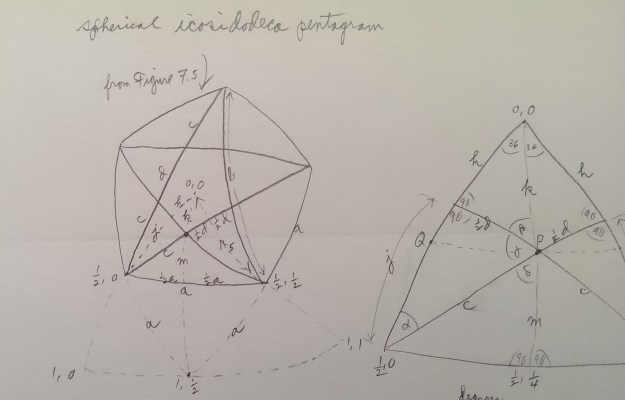 spherical icosidodeca pentagram
from Figure 7.5
0,0
c
b
d
36 36
0,0
h
h
h
k
k
c
j
½d
½d
r5
a
90
90
90
90
½d
½d
β
γ
P
Q
δ
c
m
½a
½a
a
½,0
½,½
j
c
c
α
m
a
a
1,0
1,½
1,1
½,0
90 90
½,¼
degrees